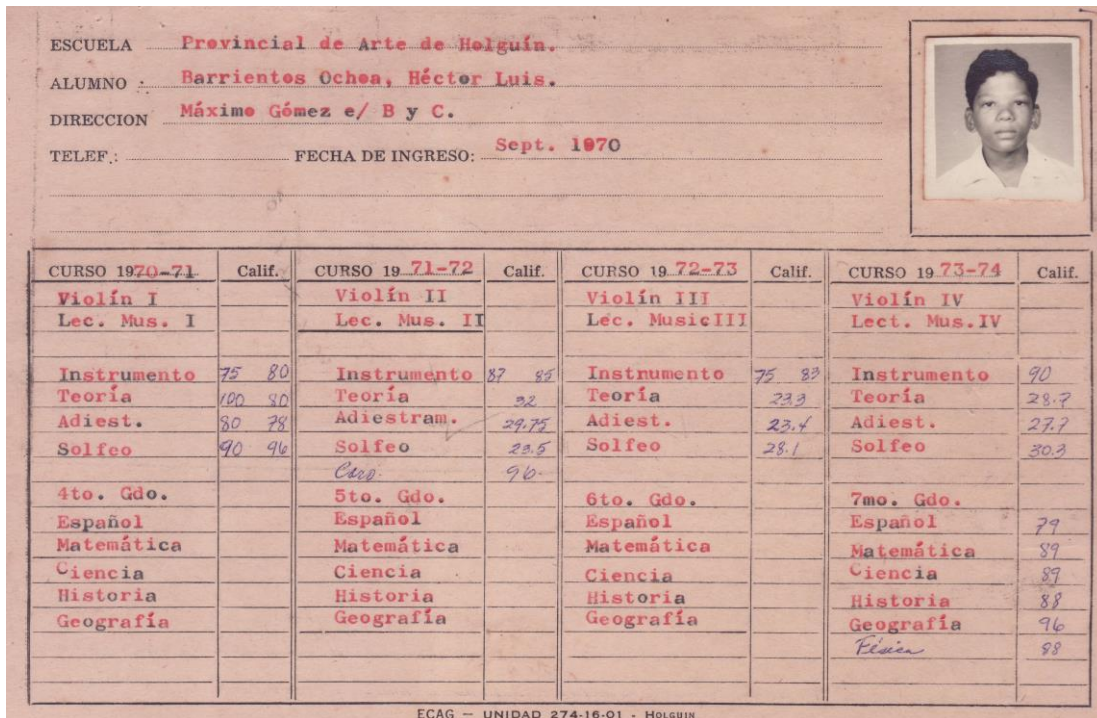 ESCUELA Provincial de Arte de Holguín.
ALUMNO : Barrientos Ochoa, Héctor Luis.
DIRECCION Máximo Gómez e/ B y C.
TELEF.: FECHA DE INGRESO: Sept. 1970
CURSO 1970-71 Calif. CURSO 19 71-72 Calif. CURSO 19 72-73 Calif. CURSO 19 73-74 Calif.
Violín I Violín II Violín III Violín IV
Lec. Mus. I Lec. Mus. II Lec. MusicIII Lect. Mus.IV
Instrumento 75 80 Instrumento 87 85 Instnumento 75 83 Instrumento 90
Teoría 100 80 Teoría 32 Teoría 23.3 Teoría 28.7
Adiest. 80 78 Adiestram. 29.75 Adiest. 23.4 Adiest. 27.7
Solfeo 90 96 Solfeo 23.5 Solfeo 28.1 Solfeo 30.3
Coro. 96-
4to. Gdo. 5to. Gdo. 6to. Gdo. 7mo. Gdo.
Español Español Español Español 79
Matemática Matemática Matemática Matemática 89
Ciencia Ciencia Ciencia Ciencia 89
Historia Historia Historia Historia 88
Geografía Geografía Geografía Geografía 96
Física 88
ECAG — UNIDAD 274-16-01 - HOLGUIN